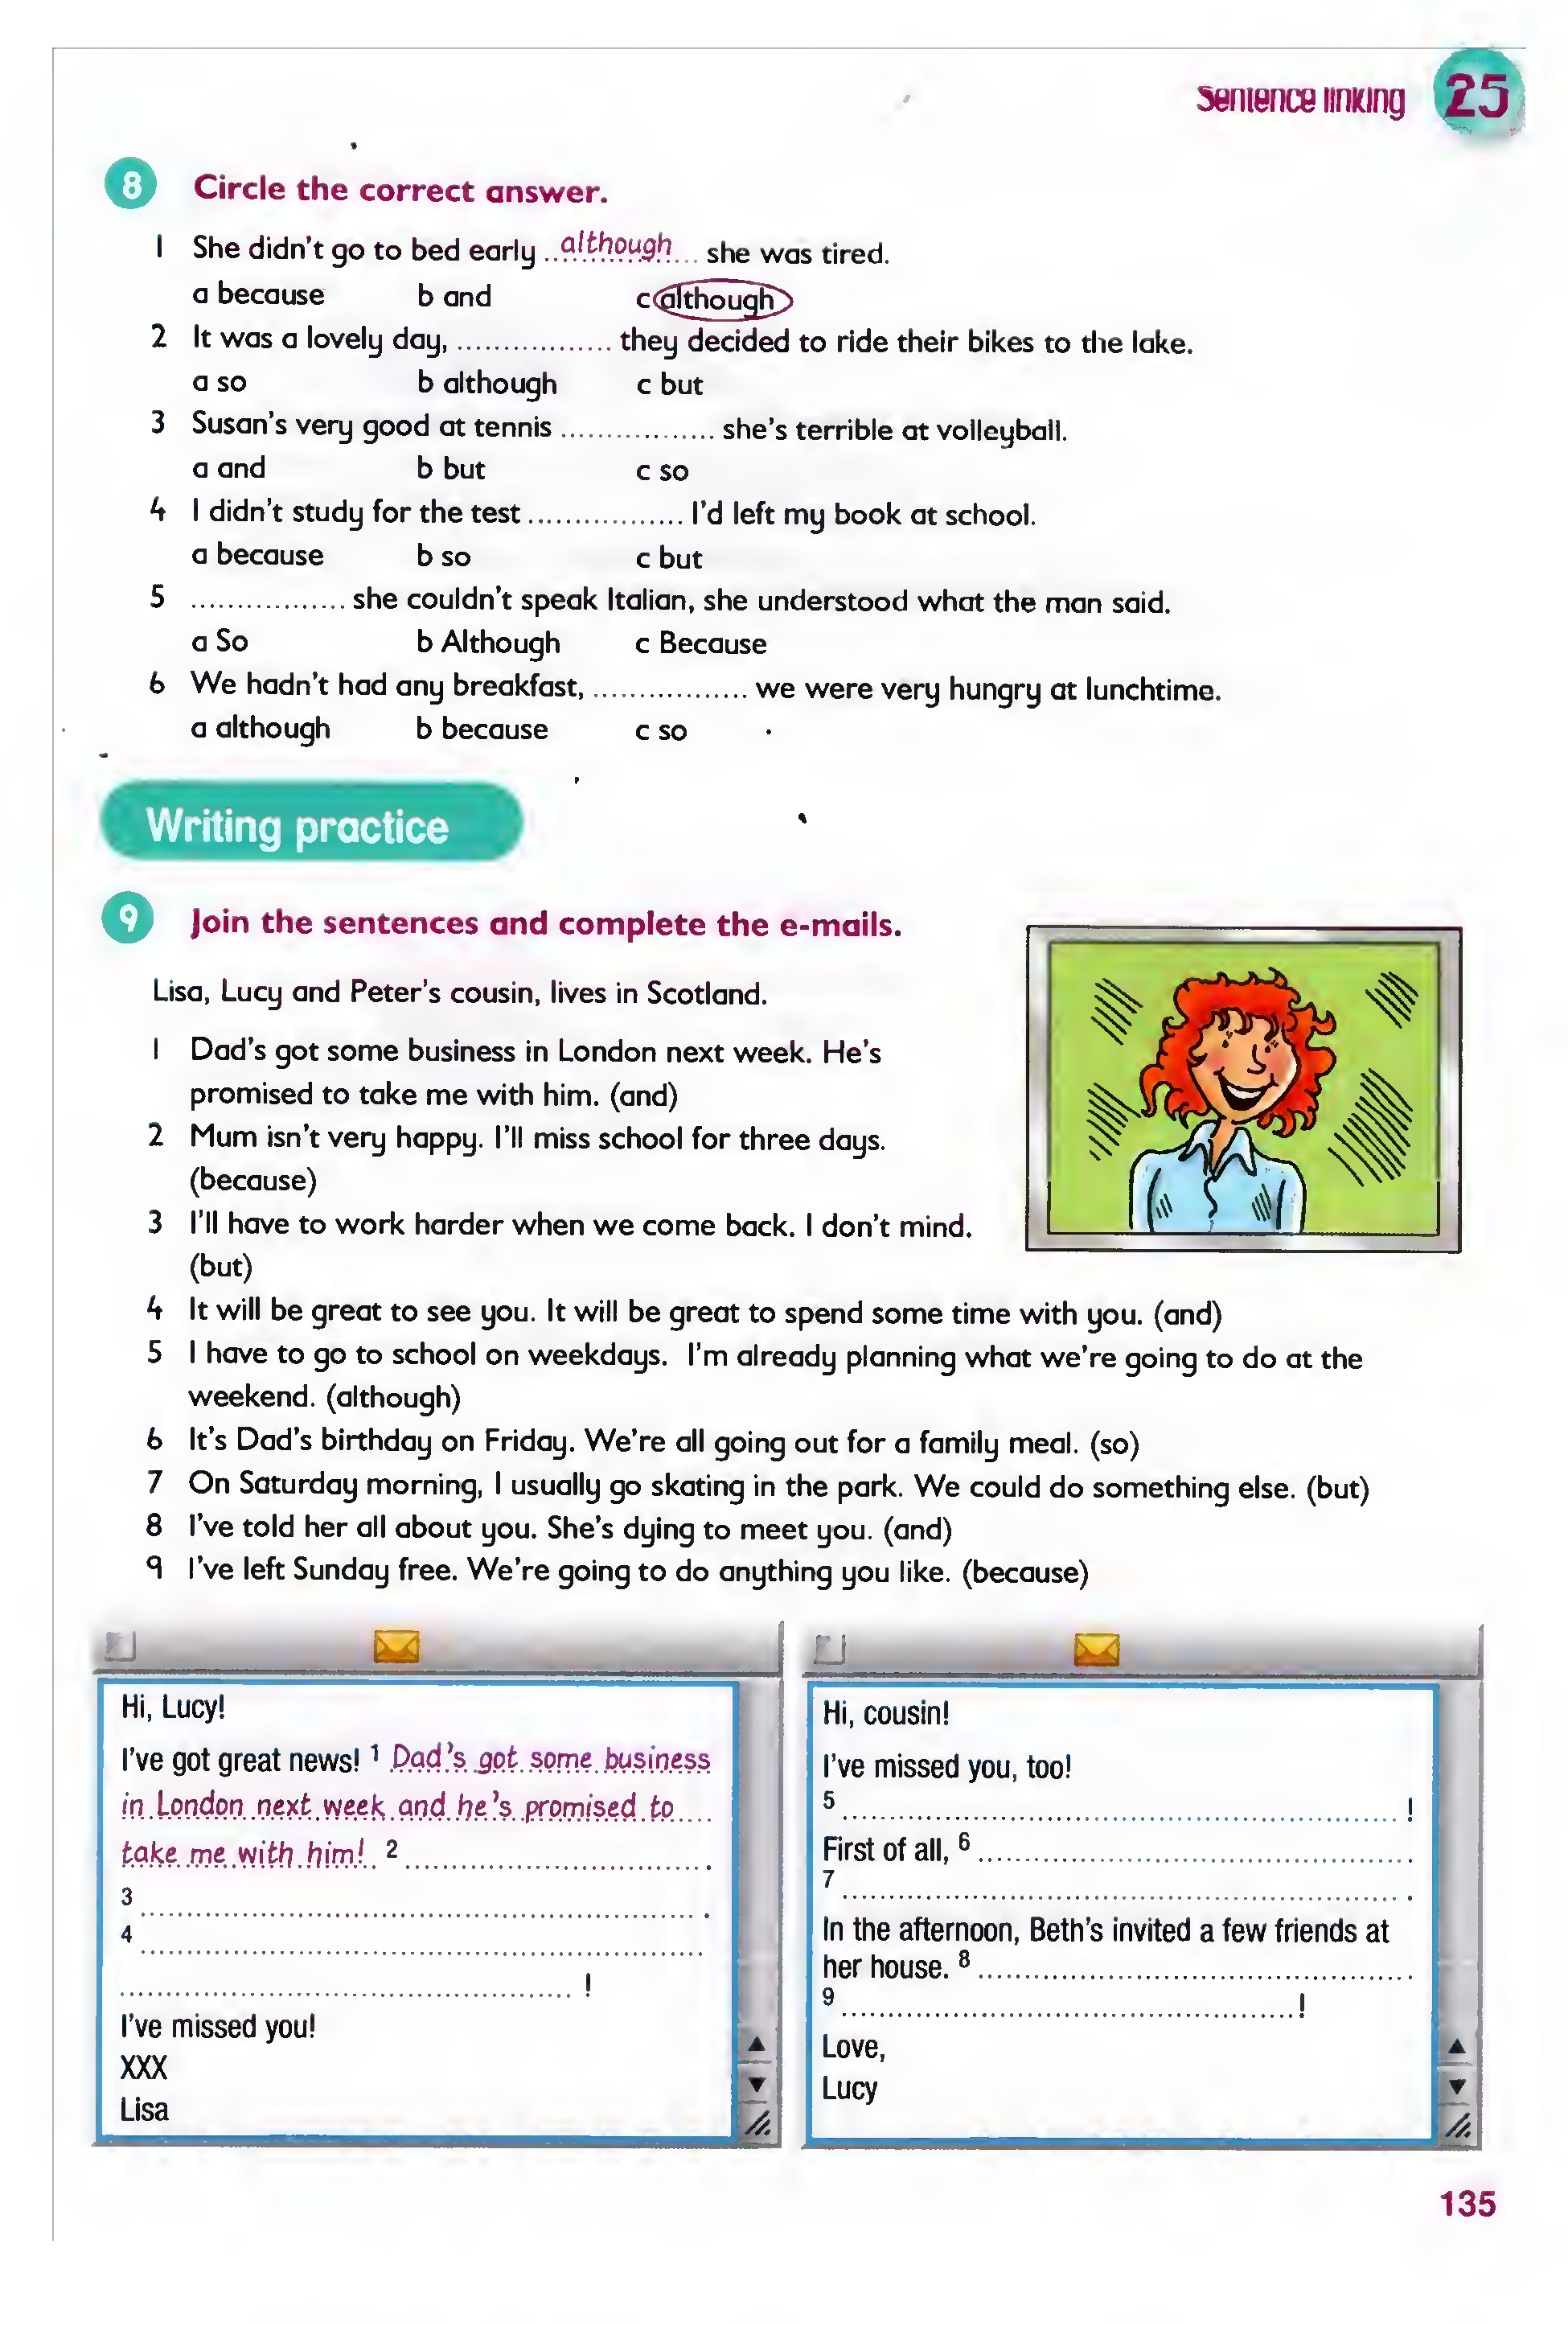 Sentence linking 25
8 Circle the correct answer.
1 She didn't go to bed early ..although... she was tired.
a because b and c although
2 It was a lovely day, ................. they decided to ride their bikes to the lake.
a so b although c but
3 Susan's very good at tennis ................. she's terrible at volleyball.
a and b but c so
4 I didn't study for the test ................. I'd left my book at school.
a because b so c but
5 ................. she couldn't speak Italian, she understood what the man said.
a So b Although c Because
6 We hadn't had any breakfast, ................. we were very hungry at lunchtime.
a although b because c so
Writing practice
9 Join the sentences and complete the e-mails.
Lisa, Lucy and Peter's cousin, lives in Scotland.
1 Dad's got some business in London next week. He's
promised to take me with him. (and)
2 Mum isn't very happy. I'll miss school for three days.
(because)
3 I'll have to work harder when we come back. I don't mind.
(but)
4 It will be great to see you. It will be great to spend some time with you. (and)
5 I have to go to school on weekdays. I'm already planning what we're going to do at the
weekend. (although)
6 It's Dad's birthday on Friday. We're all going out for a family meal. (so)
7 On Saturday morning, I usually go skating in the park. We could do something else. (but)
8 I've told her all about you. She's dying to meet you. (and)
9 I've left Sunday free. We're going to do anything you like. (because)
Hi, Lucy!
I've got great news! 1 Dad's got some business
in London next week and he's promised to
take me with him! 2 ................................ .
3 ................................ .
4 ................................
................................ !
I've missed you!
XXX
Lisa
Hi, cousin!
I've missed you, too!
5 ................................ !
First of all, 6 ................................ .
7 ................................ .
In the afternoon, Beth's invited a few friends at
her house. 8 ................................ .
9 ................................ !
Love,
Lucy
135